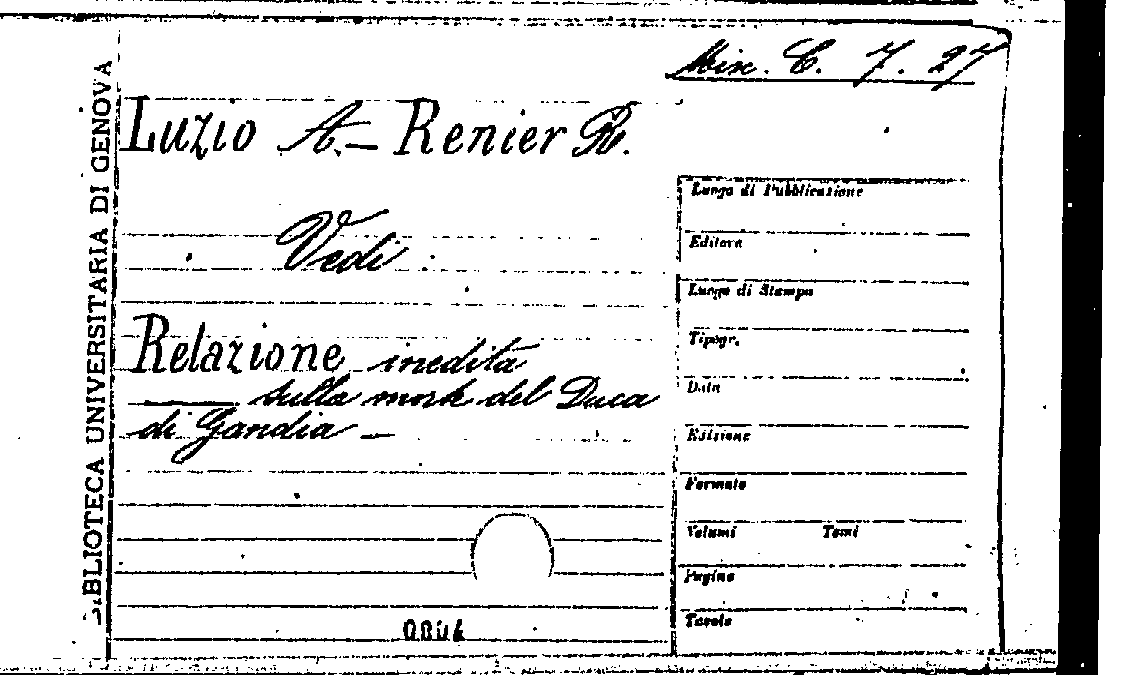 Misc. C. 7. 27
BIBLIOTECA UNIVERSITARIA DI GENOVA
Luzio A. – Renier R.
Vedi :
Relazione inedita
sulla morte del Duca
di Gandia –
Luogo di Pubblicazione
Editore
Luogo di Stampa
Tipogr.
Data
Edizione
Formato
Volumi Tomi
Pagine
Tavole